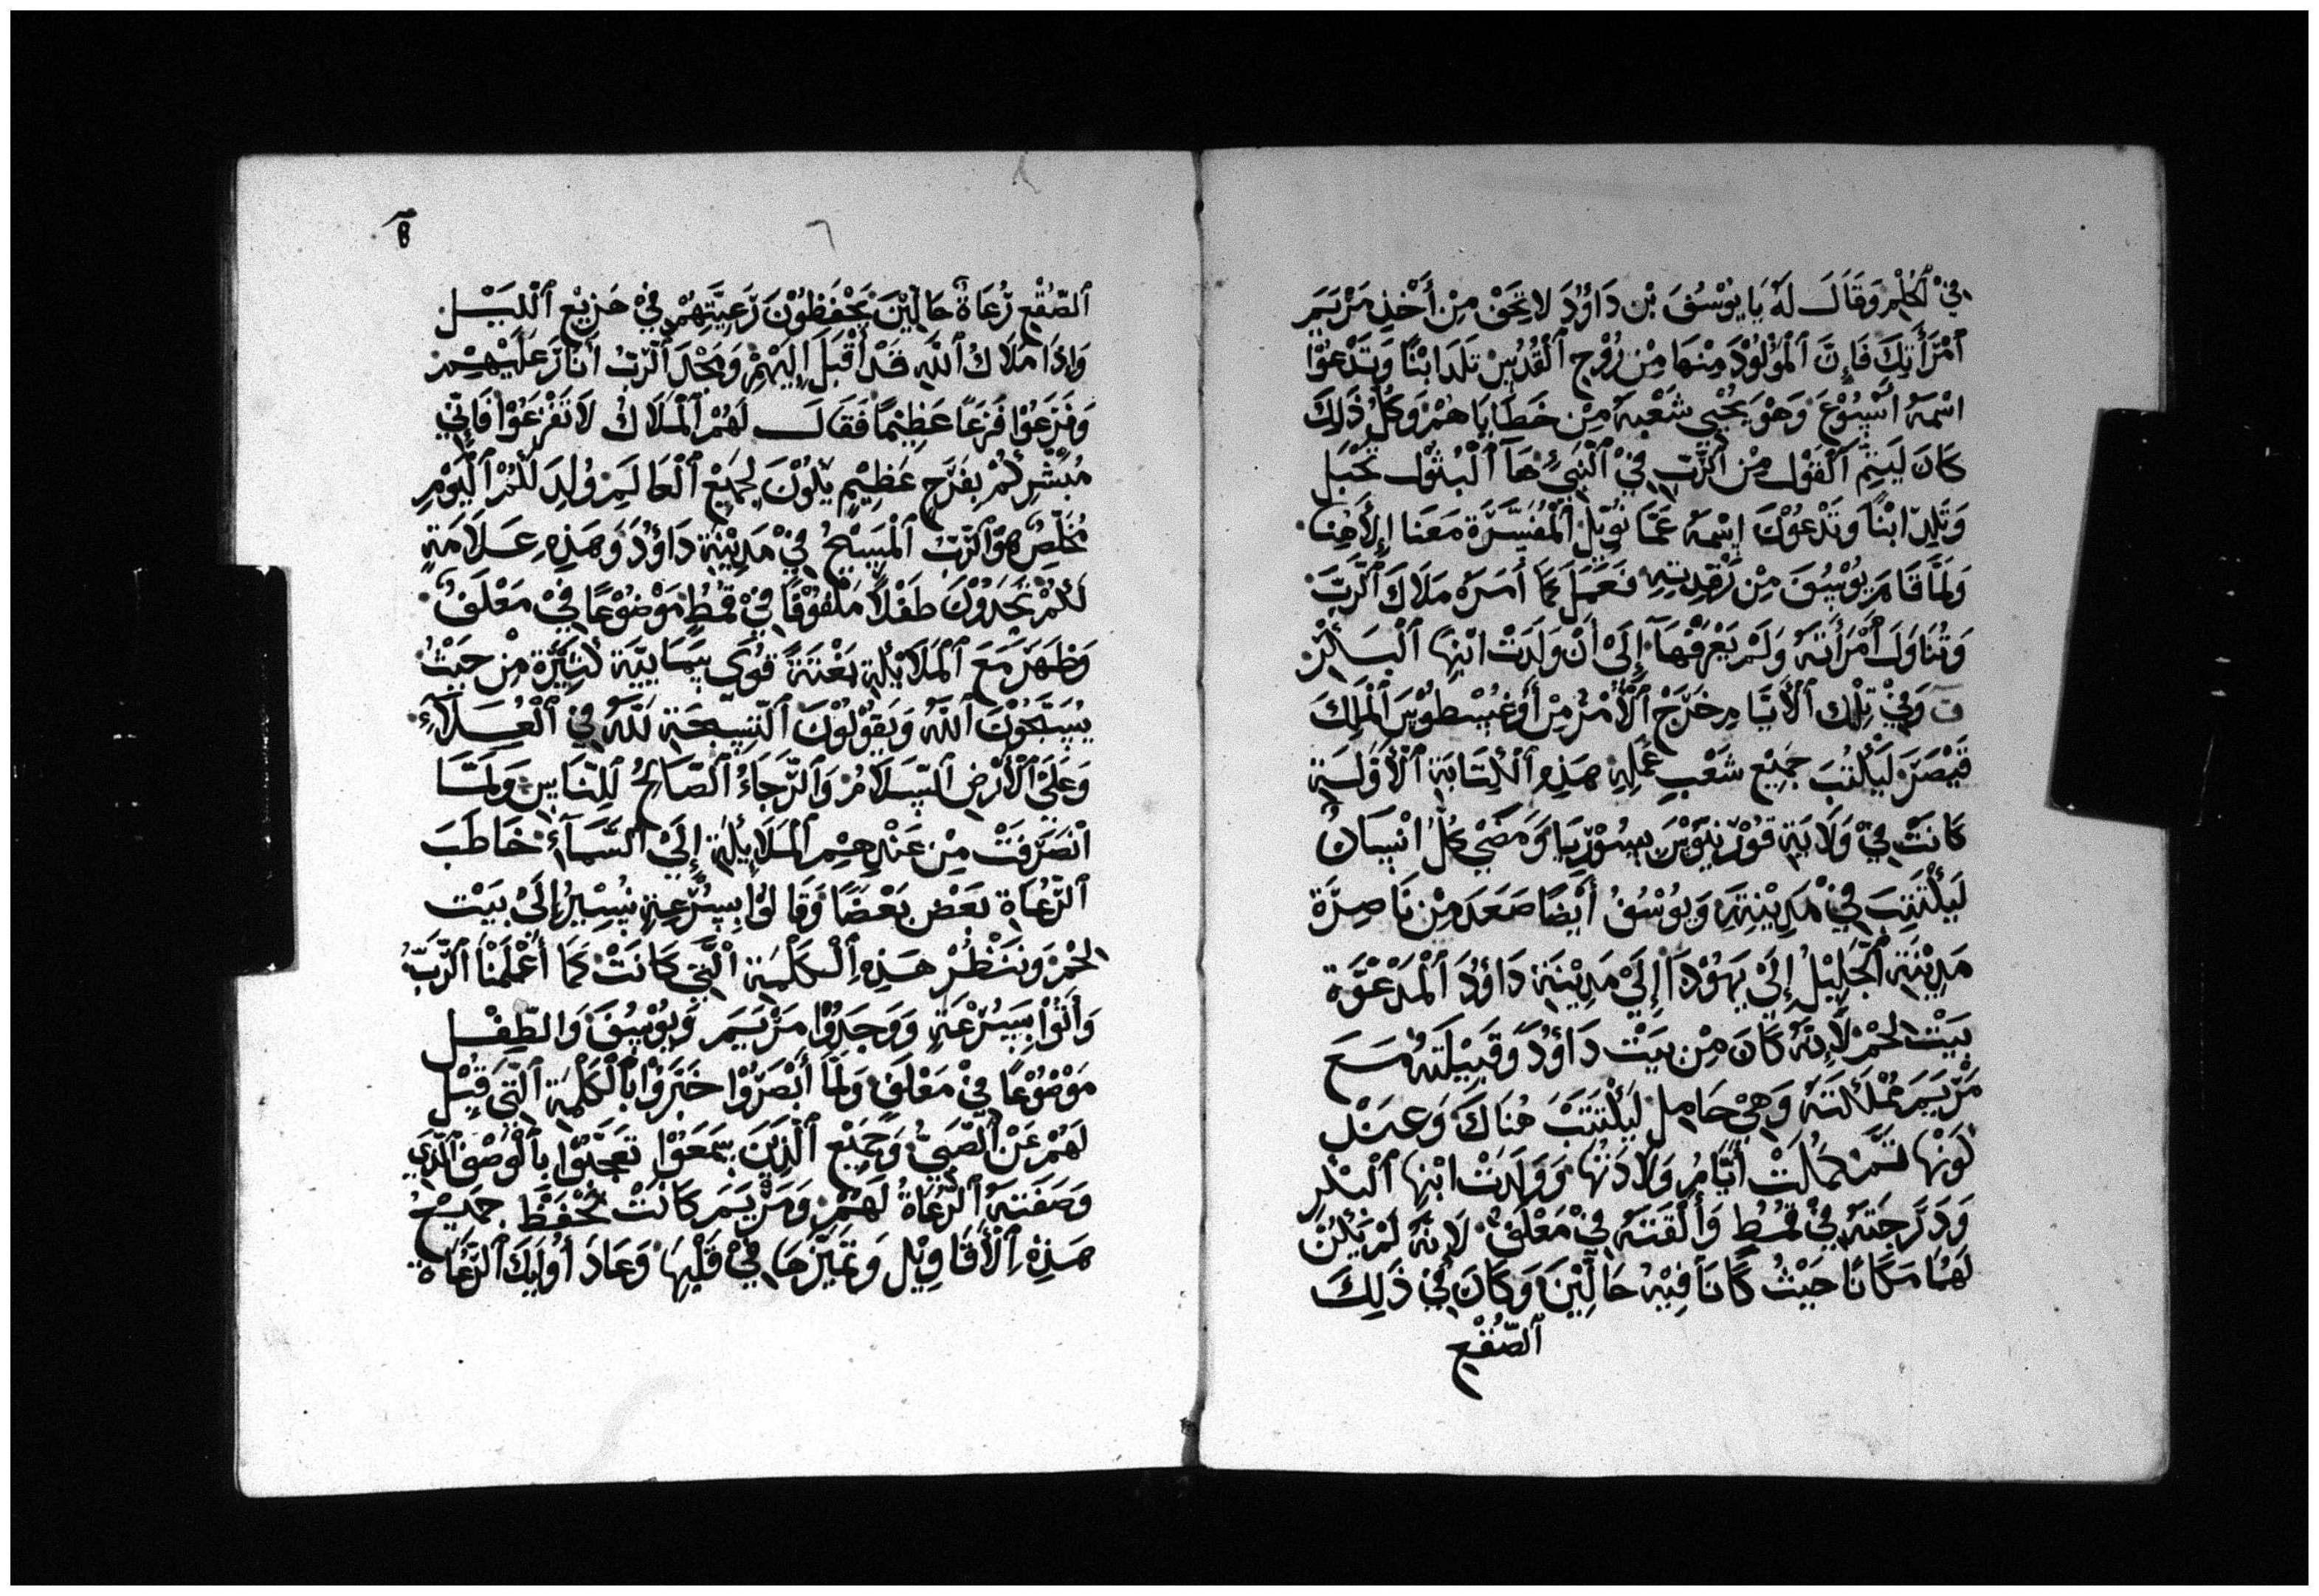 في الحلم وقال له يا يوسف بن داؤد لا تخف من أخذ مريم
امرأتك فإن المولود منها من روح القدس تلد ابنا وتدعوا
اسمه ايسوع وهو يحيى شعبه من خطاياهم وكل ذلك
كان ليتم القول من الرب في النبي ها البتول تحبل
وتلد ابنا وتدعوك اسمه عمانويل المفسرة معنا إلاهنا
ولما قام يوسف من رقدته فعمل كما أمره ملاك الرب
وتناول امرأته ولم يعرفها إلى أن ولدت ابنها البكر
وفي تلك الأيام خرج الأمر من أوغسطوس الملك
قيصر ليكتب جميع شعب عمله هذه الكتابة الأولة
كانت في ولاية قورنيوس بسوريا ومضى كل انسان
ليكتتب في مدينته ويوسف أيضا صعد من ناصرة
مدينة الجليل إلى يهودا إلى مدينة داؤد المدعوة
بيت لحم لإنه كان من بيت داؤد وقبيلته مع
مريم مملكته وهي حامل ليكتتب هناك وعند
كونها ثم كملت أيام ولادتها وولدت ابنها البكر
ودرجته في قمط وألقته في معلف لانه لم يكن
لهما مكانا حيث كانا فيه حالين وكان في ذلك
الصقع
٨
الصقع رعاة حالين يحفظون رعيتهم في هزيع الليل
واذا ملاك الله قد أقبل إليهم ومجد الرب أنار عليهم
وفزعوا فزعا عظيما فقال لهم الملاك لا تفزعوا فاني
مبشركم بفرح عظيم يكون لجميع العالم ولد لكم اليوم
مخلص هو الرب المسيح في مدينة داؤد وهذه علامة
لكم تجدوك طفلا ملفوفا في قمط موضوعا في معلف
وظهر مع الملايكة بغتة قوى سمايية كثيرة من حيث
يسبحون الله ويقولون التسبحة لله في العلاء
وعلى الأرض السلام والرجاء الصالح للناس ولما
انصرفت من عندهم الملايكة إلى السماء خاطب
الرعاة بعض بعضا وقالوا بسرعة نسير إلى بيت
لحم وننظر هذه الكلمة التي كانت كما أعلمنا الرب
وأتوا بسرعة ووجدوا مريم ويوسف والطفل
موضوعا في معلف ولما أبصروا خبروا بالكلمة التي قيل
لهم عن الصبي وجميع الذين سمعوا تعجبوا بالوصف الذي
وصفته الرعاة لهم ومريم كانت تحفظ جميع
هذه الأقاويل وتميزها في قلبها وعاد أوليك الرعاة